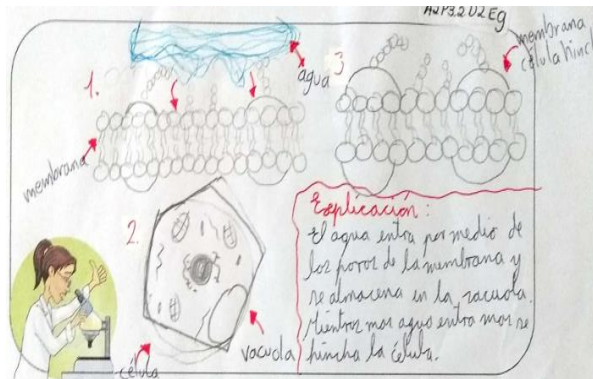 A2P3.2U2Eg
1.
agua
3
membrana
célula hinch
membrana
2.
célula
vacuola
Explicación:
El agua entra por medio de
los poros de la membrana y
se almacena en la vacuola.
Mientras mas agua entra mas se
hincha la célula.